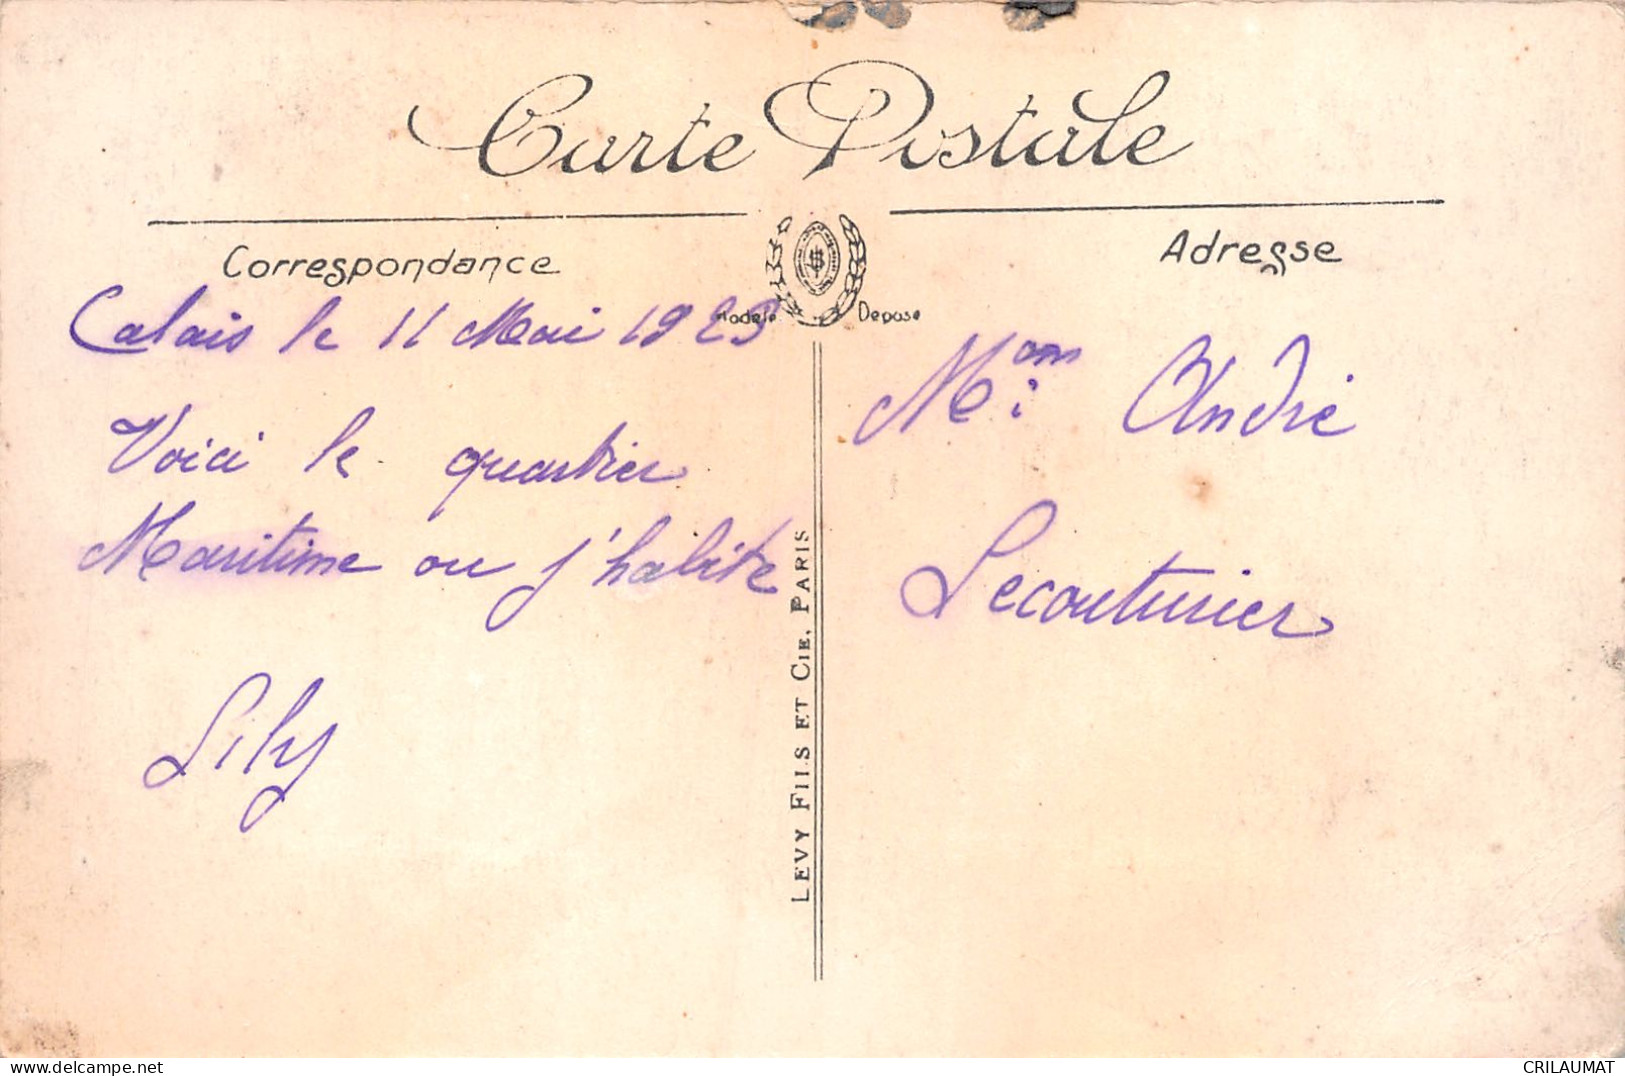 Carte Postale
Correspondance
Adresse
Modèle Déposé
Calais le 11 Mai 1923
Voici le quartier
Maritime ou j'habite
Lily
André
Lecouturier
LEVY FILS ET CIE, PARIS
delcampe.net
CRILAUMAT